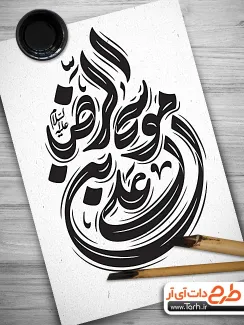 علي بن موسى الرضا
عليه السلام
طرح دات آی آر
www.Tarh.ir